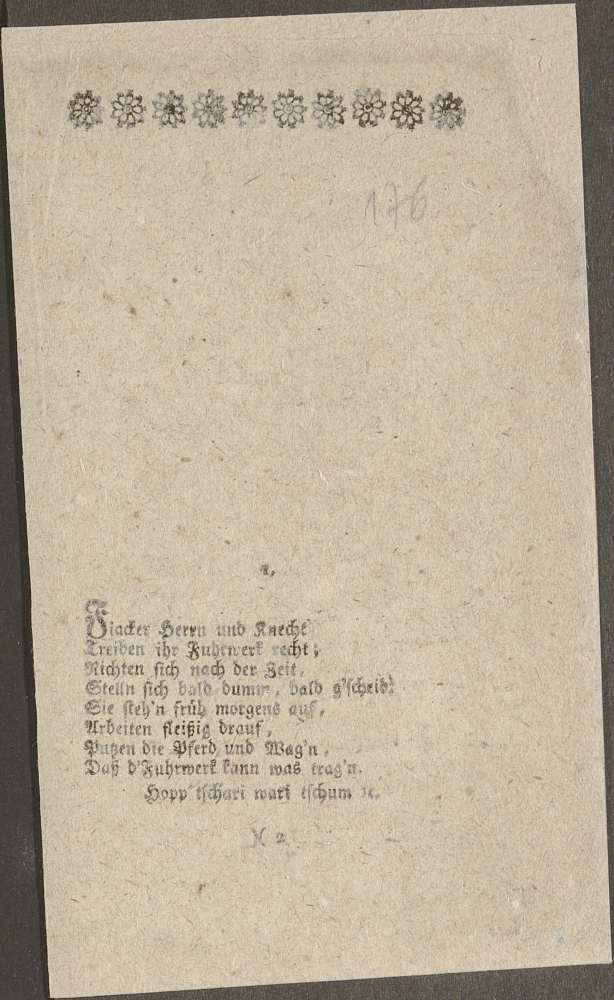 176
1.
Fiacker Herrn und Knecht
Treiben ihr Fuhrwerk recht;
Richten sich nach der Zeit,
Stelln sich bald dumm, bald g'scheid:
Sie steh'n früh morgens auf,
Arbeiten fleißig drauf,
Putzen die Pferd und Wag'n,
Daß d'Fuhrwerk kann was trag'n.
Hopp tschari wari tschum ꝛc.
N 2